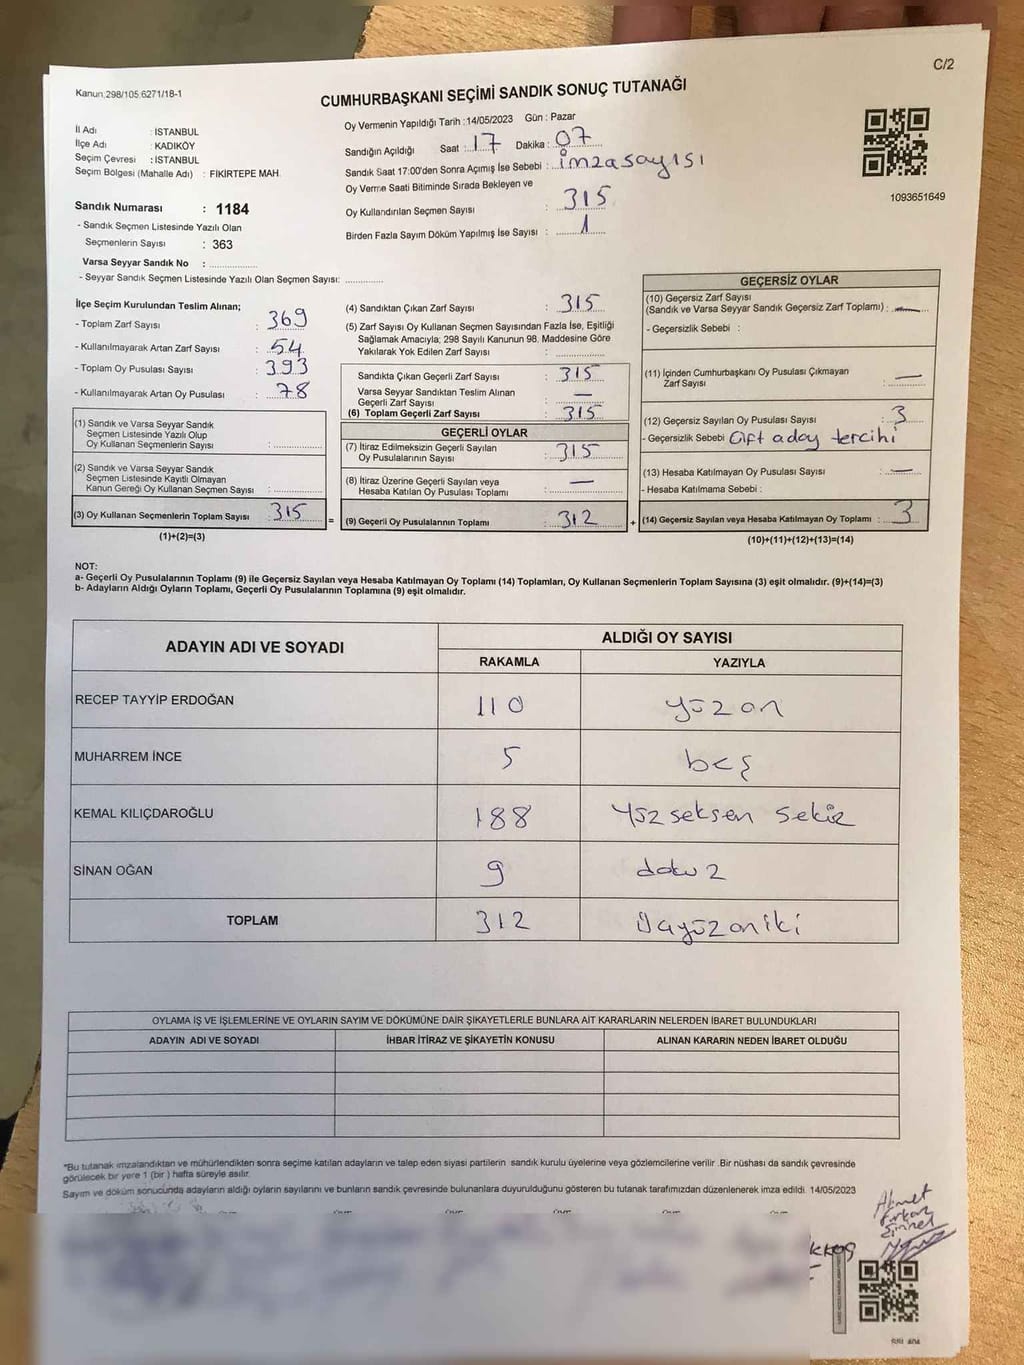 C/2
Kanun:298/105;6271/18-1
CUMHURBAŞKANI SEÇİMİ SANDIK SONUÇ TUTANAĞI
İl Adı : İSTANBUL
İlçe Adı : KADIKÖY
Seçim Çevresi : İSTANBUL
Seçim Bölgesi (Mahalle Adı) : FİKİRTEPE MAH.
Sandık Numarası : 1184
- Sandık Seçmen Listesinde Yazılı Olan
Seçmenlerin Sayısı : 363
Varsa Seyyar Sandık No : ..............
- Seyyar Sandık Seçmen Listesinde Yazılı Olan Seçmen Sayısı: ............
Oy Vermenin Yapıldığı Tarih :14/05/2023 Gün : Pazar
Sandığın Açıldığı Saat : 17 Dakika : 07
Sandık Saat 17:00'den Sonra Açımış İse Sebebi : imza sayısı
Oy Verme Saati Bitiminde Sırada Bekleyen ve
Oy Kullandırılan Seçmen Sayısı : 315
Birden Fazla Sayım Döküm Yapılmış İse Sayısı : 1
1093651649
İlçe Seçim Kurulundan Teslim Alınan;
- Toplam Zarf Sayısı : 369
- Kullanılmayarak Artan Zarf Sayısı : 54
- Toplam Oy Pusulası Sayısı : 393
- Kullanılmayarak Artan Oy Pusulası : 78
(1) Sandık ve Varsa Seyyar Sandık
Seçmen Listesinde Yazılı Olup
Oy Kullanan Seçmenlerin Sayısı : ............
(2) Sandık ve Varsa Seyyar Sandık
Seçmen Listesinde Kayıtlı Olmayan
Kanun Gereği Oy Kullanan Seçmen Sayısı : ............
(3) Oy Kullanan Seçmenlerin Toplam Sayısı : 315
(1)+(2)=(3)
=
(4) Sandıktan Çıkan Zarf Sayısı : 315
(5) Zarf Sayısı Oy Kullanan Seçmen Sayısından Fazla İse, Eşitliği
Sağlamak Amacıyla; 298 Sayılı Kanunun 98. Maddesine Göre
Yakılarak Yok Edilen Zarf Sayısı : ............
Sandıkta Çıkan Geçerli Zarf Sayısı : 315
Varsa Seyyar Sandıktan Teslim Alınan
Geçerli Zarf Sayısı : —
(6) Toplam Geçerli Zarf Sayısı : 315
GEÇERLİ OYLAR
(7) İtiraz Edilmeksizin Geçerli Sayılan
Oy Pusulalarının Sayısı : 315
(8) İtiraz Üzerine Geçerli Sayılan veya
Hesaba Katılan Oy Pusulası Toplamı : —
(9) Geçerli Oy Pusulalarının Toplamı : 312
+
GEÇERSİZ OYLAR
(10) Geçersiz Zarf Sayısı
(Sandık ve Varsa Seyyar Sandık Geçersiz Zarf Toplamı) : —
- Geçersizlik Sebebi :
(11) İçinden Cumhurbaşkanı Oy Pusulası Çıkmayan
Zarf Sayısı : —
(12) Geçersiz Sayılan Oy Pusulası Sayısı : 3
- Geçersizlik Sebebi : çift aday tercihi
(13) Hesaba Katılmayan Oy Pusulası Sayısı : —
- Hesaba Katılmama Sebebi :
(14) Geçersiz Sayılan veya Hesaba Katılmayan Oy Toplamı : 3
(10)+(11)+(12)+(13)=(14)
NOT:
a- Geçerli Oy Pusulalarının Toplamı (9) ile Geçersiz Sayılan veya Hesaba Katılmayan Oy Toplamı (14) Toplamları, Oy Kullanan Seçmenlerin Toplam Sayısına (3) eşit olmalıdır. (9)+(14)=(3)
b- Adayların Aldığı Oyların Toplamı, Geçerli Oy Pusulalarının Toplamına (9) eşit olmalıdır.
ADAYIN ADI VE SOYADI ALDIĞI OY SAYISI
RAKAMLA YAZIYLA
RECEP TAYYİP ERDOĞAN 110 yüz on
MUHARREM İNCE 5 beş
KEMAL KILIÇDAROĞLU 188 yüz seksen sekiz
SİNAN OĞAN 9 dokuz
TOPLAM 312 Üçyüzoniki
OYLAMA İŞ VE İŞLEMLERİNE VE OYLARIN SAYIM VE DÖKÜMÜNE DAİR ŞİKAYETLERLE BUNLARA AİT KARARLARIN NELERDEN İBARET BULUNDUKLARI
ADAYIN ADI VE SOYADI İHBAR İTİRAZ VE ŞİKAYETİN KONUSU ALINAN KARARIN NEDEN İBARET OLDUĞU
*Bu tutanak imzalandıktan ve mühürlendikten sonra seçime katılan adayların ve talep eden siyasi partilerin sandık kurulu üyelerine veya gözlemcilerine verilir .Bir nüshası da sandık çevresinde
görülecek bir yere 1 (bir ) hafta süreyle asılır.
Sayım ve döküm sonucunda adayların aldığı oyların sayılarını ve bunların sandık çevresinde bulunanlara duyurulduğunu gösteren bu tutanak tarafımızdan düzenlenerek imza edildi. 14/05/2023
Ahmet